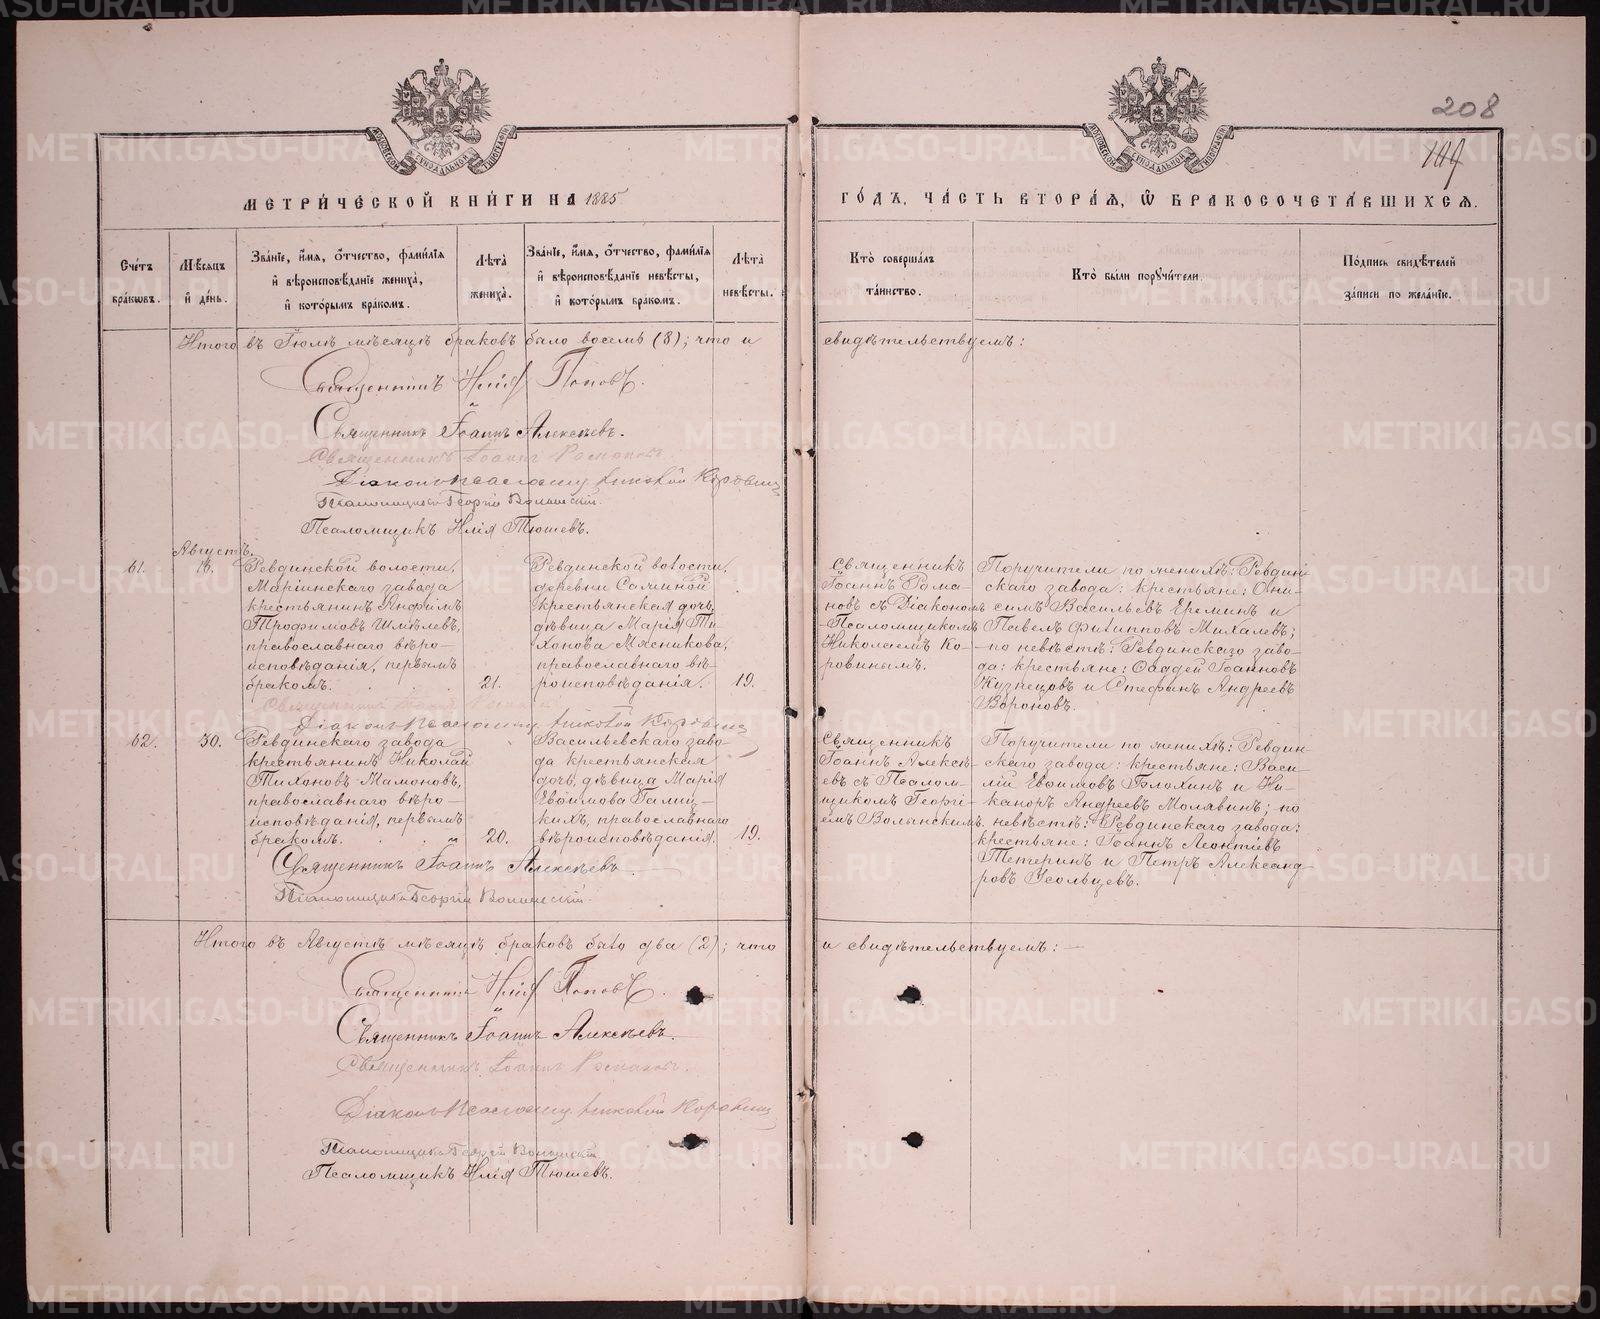 208
109
МЕТРИ́ЧЕСКОЙ КНИ́ГИ НА 1885
ГО́ДЪ, ЧА́СТЬ ВТОРА́Я, Ѽ БРАКОСОЧЕТА́ВШИХСЯ.
Сче́тъ бра́ковъ.
Мѣ́сяцъ и҆ де́нь.
Зва́нїе, и҆́мя, ѻ҆́тчество, фами́лїя
и҆ вѣроисповѣ́данїе жениха̀,
и҆ кото́рымъ бра́комъ.
Лѣта̀ жениха̀.
Зва́нїе, и҆́мя, ѻ҆́тчество, фами́лїя
и҆ вѣроисповѣ́данїе невѣ́сты,
и҆ кото́рымъ бра́комъ.
Лѣта̀ невѣ́сты.
Кто̀ соверша́лъ та́инство.
Кто̀ бы́ли порꙋчи́тели.
По́дпись свидѣ́телей за́писи по жела́нїю.
Итого въ Іюлѣ мѣсяцѣ браковъ было восемь (8); что и свидѣтельствуемъ:
Священникъ Илія Поповъ.
Священникъ Іоаннъ Алексѣевъ.
Священникъ Іоаннъ Романовъ.
Діаконъ Николай Коровинъ
Псаломщикъ Георгій Волынскій.
Псаломщикъ Илія Тюшевъ.
Августъ.
61.
18.
Ревдинской волости,
Маріинскаго завода
крестьянинъ Анфимъ
Трофимовъ Шмѣлевъ,
православнаго вѣро-
исповѣданія, первымъ
бракомъ.
21.
Ревдинской волости,
деревни Солиной
крестьянская дочь,
дѣвица Марія Ти-
хонова Мясникова,
православнаго вѣ-
роисповѣданія.
19.
Священникъ
Іоаннъ Рома-
новъ съ Діакономъ
-Псаломщикомъ
Николаемъ Ко-
ровинымъ.
Поручители по женихѣ: Ревдин-
скаго завода: крестьяне: Они-
симъ Васильевъ Ереминъ и
Павелъ Филипповъ Михалевъ;
-по невѣстѣ: Ревдинскаго заво-
да: крестьяне: Ѳаддей Іоанновъ
Кузнецовъ и Стефанъ Андреевъ
Вороновъ.
Священникъ Іоаннъ Романовъ
Діаконъ Николай Коровинъ
62.
30.
Ревдинскаго завода
крестьянинъ Николай
Тихоновъ Мамоновъ,
православнаго вѣро-
исповѣданія, первымъ
бракомъ.
20.
Васильевскаго заво-
да крестьянская
дочь, дѣвица Марія
Евѳимова Галиц-
кихъ, православнаго
вѣроисповѣданія.
19.
Священникъ
Іоаннъ Алексѣ-
евъ съ Псалом-
щикомъ Георгі-
емъ Волынскимъ.
Поручители по женихѣ: Ревдин-
скаго завода: крестьяне: Васи-
лій Евѳимовъ Блохинъ и Ни-
каноръ Андреевъ Молявинъ; по
невѣстѣ: Ревдинскаго завода:
крестьяне: Іоаннъ Леонтіевъ
Тетеринъ и Петръ Александ-
ровъ Усольцевъ.
Священникъ Іоаннъ Алексѣевъ.
Псаломщикъ Георгій Волынскій.
Итого въ Августѣ мѣсяцѣ браковъ было два (2); что и свидѣтельствуемъ: —
Священникъ Илія Поповъ.
Священникъ Іоаннъ Алексѣевъ.
Священникъ Іоаннъ Романовъ.
Діаконъ Николай Коровинъ
Псаломщикъ Георгій Волынскій
Псаломщикъ Илія Тюшевъ.
METRIKI.GASO-URAL.RU